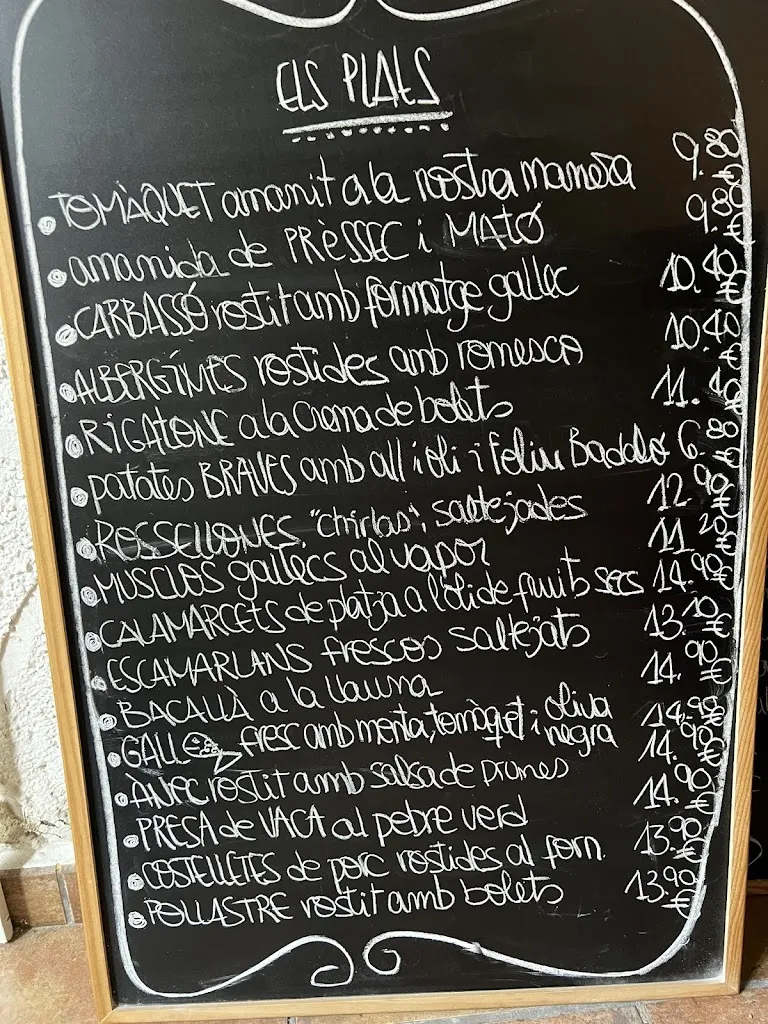 ELS PLATS
TOMÀQUET amanit a la nostra manera 9.80
amanida de PRÈSSEC i MATÓ 9.80
CARBASSÓ rostit amb formatge gallec 10.40
ALBERGÍNIES rostides amb romesco 10.40
RIGATONE a la crema de bolets 11.40
patates BRAVES amb all i oli i Feliu Badalo 6.80
ROSSELLONES "chirlas" saltejades 12.90
MUSCLOS gallecs al vapor 11.20
CALAMARCETS de platja a l'oli de fruits secs 14.90
ESCAMARLANS frescos saltejats 13.10
BACALLÀ a la llauna 14.90
GALL fresc amb menta, tomàquet i oliva negra 14.90
ÀNEC rostit amb salsa de prunes 14.90
PRESA de VACA al pebre verd 14.90
COSTELLETES de porc rostides al forn. 13.90
POLLASTRE rostit amb bolets 13.90